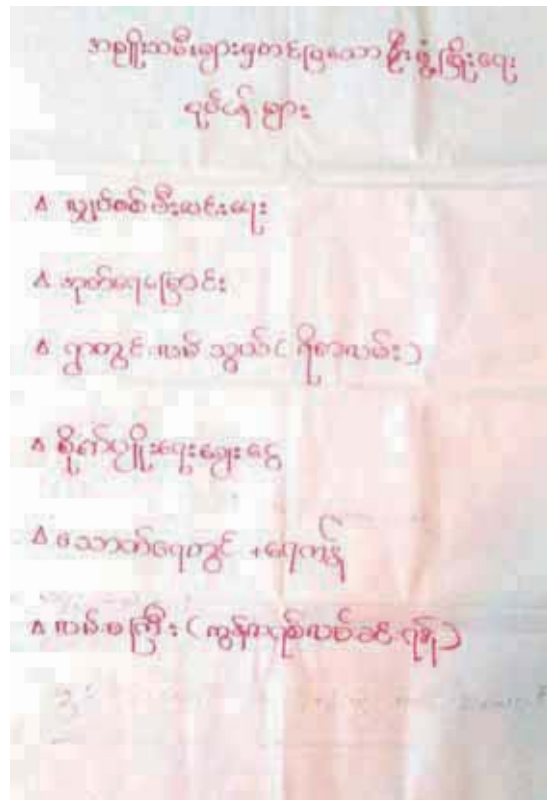 အမျိုးသမီးများမှတင်ပြသော ဦးဖွံ့ဖြိုးရေး
လုပ်ငန်းများ
∆ လျှပ်စစ်မီးလင်းရေး
∆ အုတ်ရေမြောင်း
∆ ရွာတွင်းလမ်းသွယ် ( ရိုးရာလမ်း )
∆ စိုက်ပျိုးရေးချေးငွေ
∆ သောက်ရေတွင်း + ရေကန်
∆ လမ်းမကြီး ( ကွန်ကရစ်လမ်းခင်းရန် )